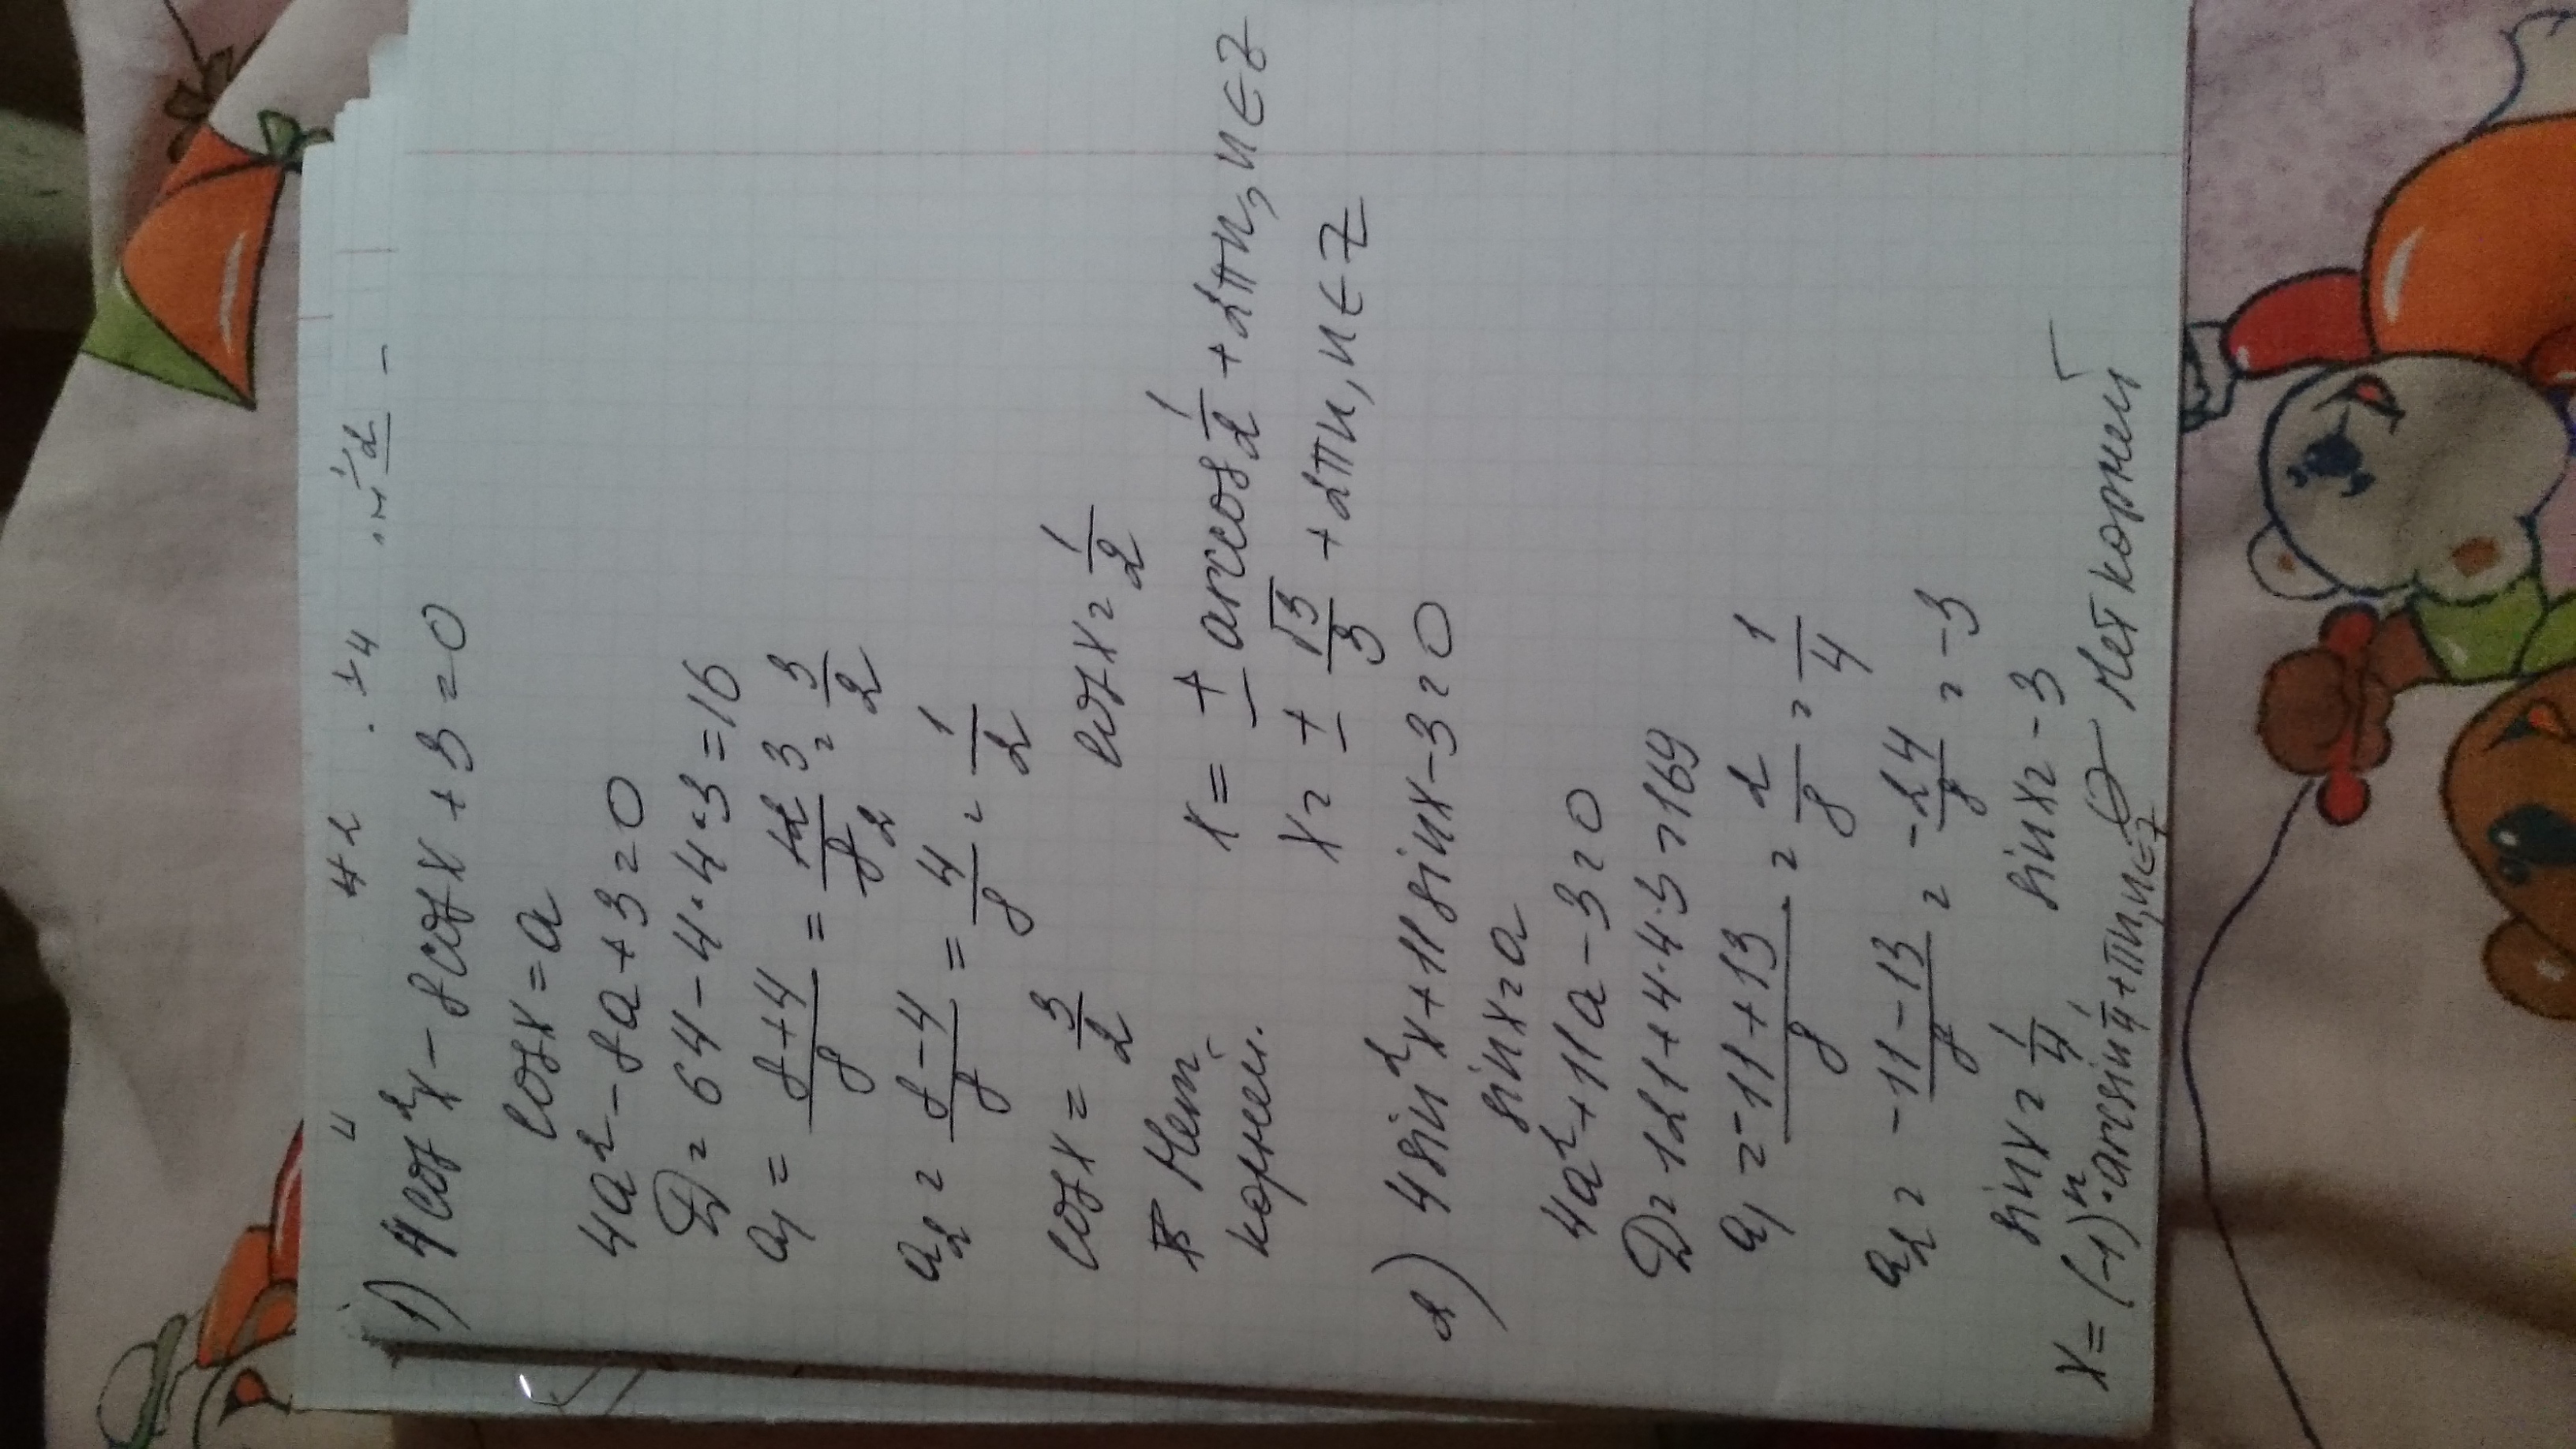 1) 4cos²x - 8cosx + 3 = 0
cosx = a
4a² - 8a + 3 = 0
Д = 64 - 4·4·3 = 16
a₁ = (8+4)/8 = 12/8 = 3/2
a₂ = (8-4)/8 = 4/8 = 1/2
cosx = 3/2 cosx = 1/2
Нет корней. x = ± arccos 1/2 + 2πn, n ∈ Z
x = ± √3/3 + 2πn, n ∈ Z
2) 4sin²x + 11sinx - 3 = 0
sinx = a
4a² + 11a - 3 = 0
Д = 121 + 4·4·3 = 169
a₁ = (-11+13)/8 = 2/8 = 1/4
a₂ = (-11-13)/8 = -24/8 = -3
sinx = 1/4 sinx = -3
x = (-1)ⁿ · arcsin 1/4 + πn, n ∈ Z Нет корней